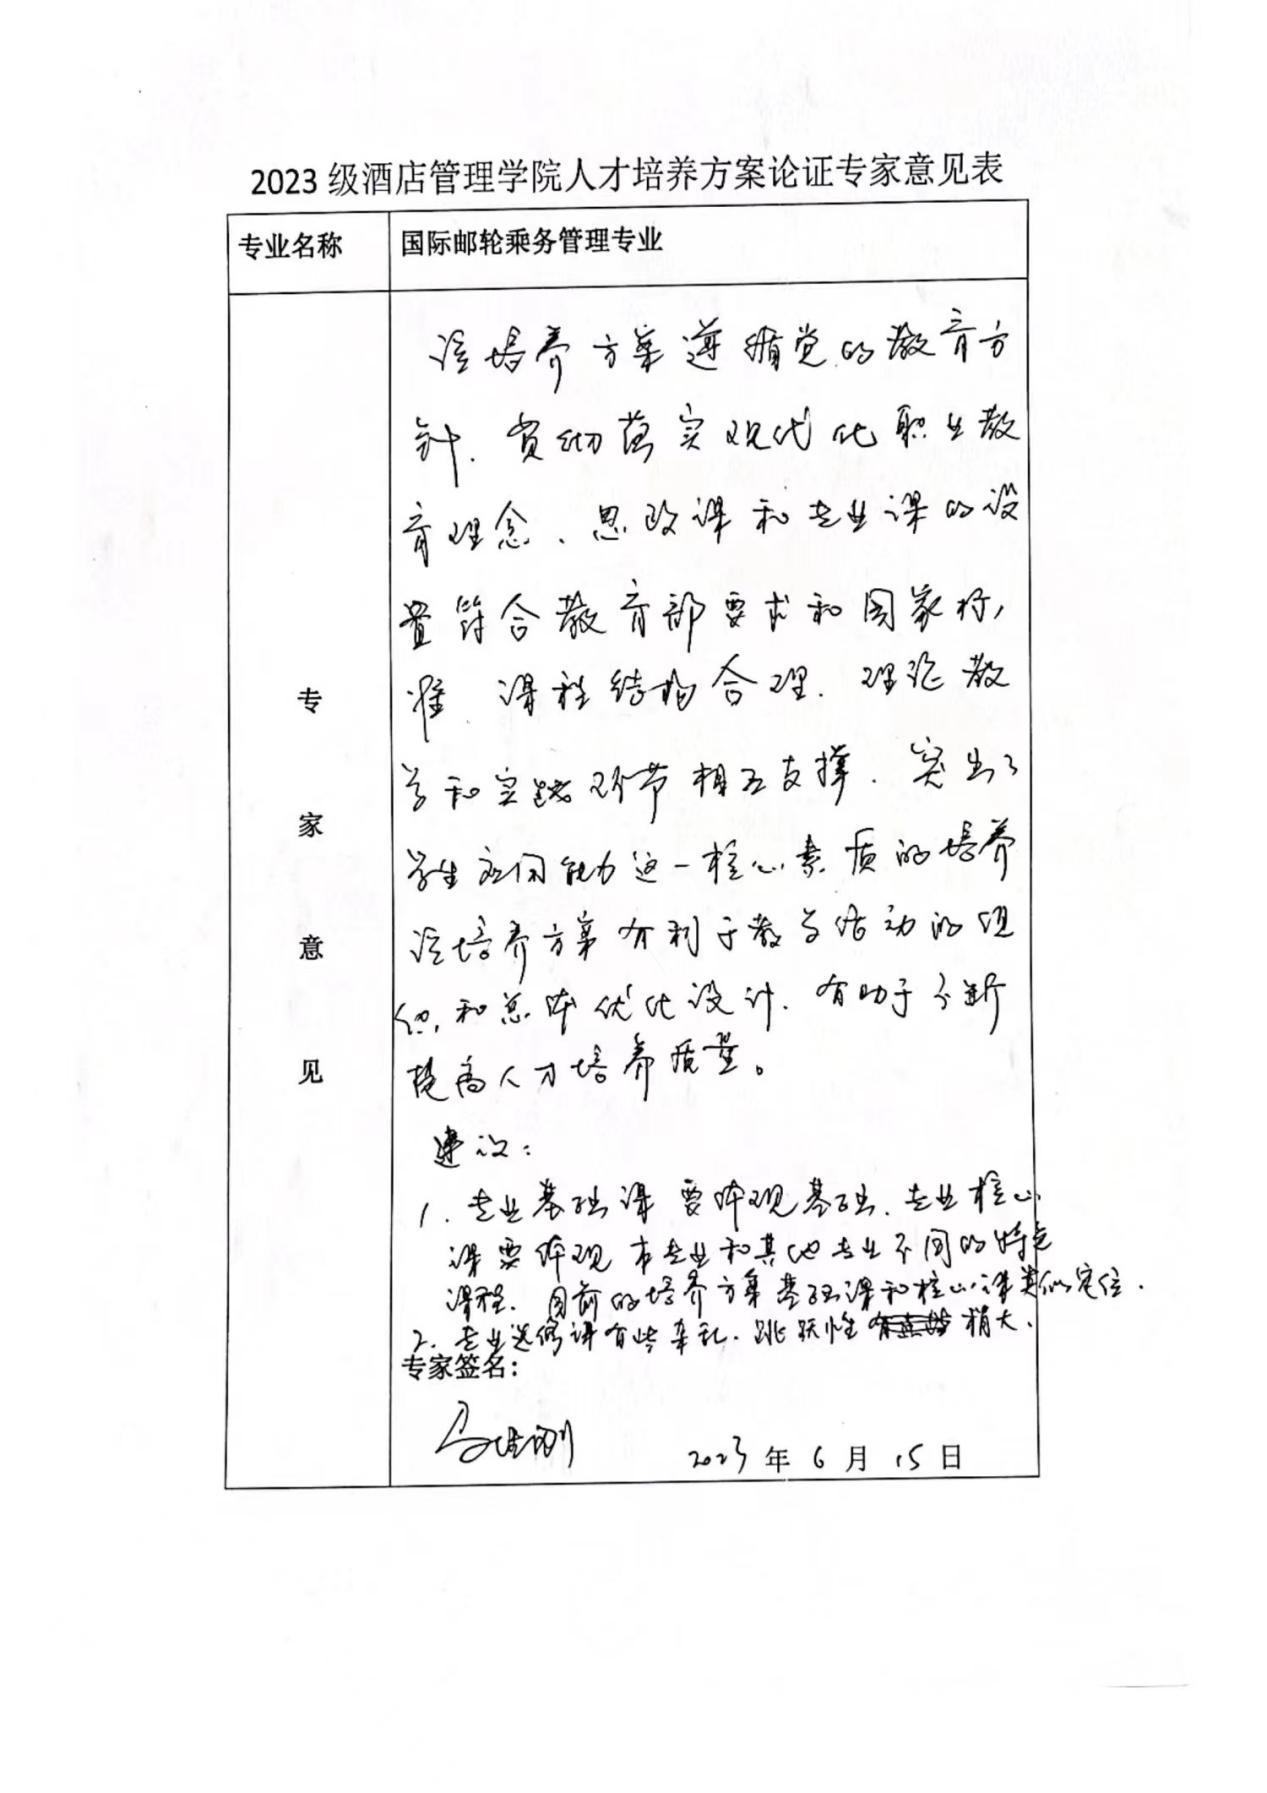 2023级酒店管理学院人才培养方案论证专家意见表
专业名称
国际邮轮乘务管理专业
专家意见
该培养方案遵循党的教育方
针、贯彻落实现代化职业教
育理念、思政课和专业课的设
置符合教育部要求和国家标
准、课程结构合理、理论教
学和实践环节相互支撑、突出了
学生应用能力这一核心素质的培养
该培养方案有利于教学活动的组
织和总体优化设计、有助于不断
提高人才培养质量。
建议:
1. 专业基础课要体现基础、专业核心
课要体现本专业和其他专业不同的特色
课程、目前的培养方案基础课和核心课类似定位.
2. 专业选修课有些杂乱、跳跃性稍大.
专家签名:
2023年6月15日